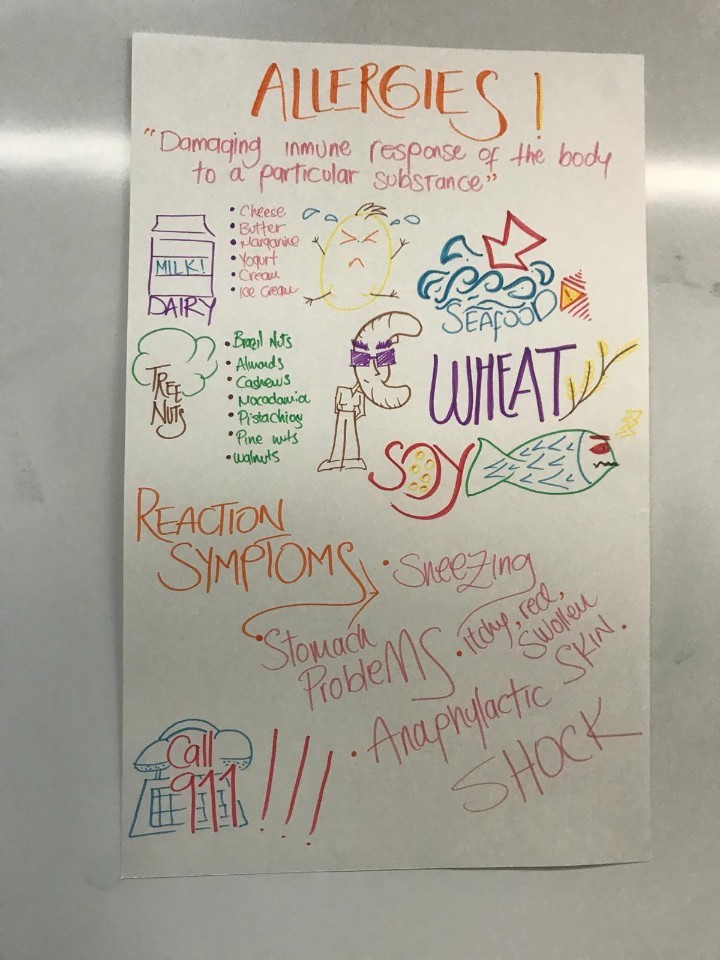 ALLERGIES!
"Damaging inmune response of the body
to a particular substance"
MILK!
DAIRY
• Cheese
• Butter
• Margarine
• Yogurt
• Cream
• Ice Cream
SEAFOOD
!
TREE
NUTS
• Brazil Nuts
• Almonds
• Cashews
• Macadamia
• Pistachios
• Pine nuts
• Walnuts
WHEAT
SOY
REACTION
SYMPTOMS
• Sneezing
• Stomach
Problems
• itchy, red,
Swollen
SKIN.
• Anaphylactic
SHOCK
Call
911!!!